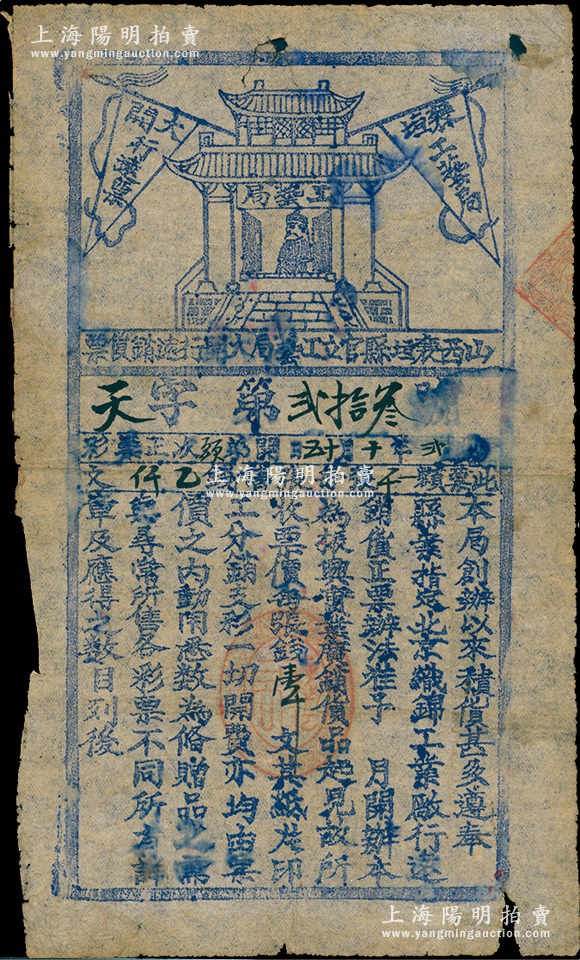 上海陽明拍賣
www.yangmingauction.com
襄垣工藝局
大開行法票
工藝局
山西襄垣縣官立工藝局大開行法銷貨票
天字第貳拾叁號
貳年十月十五日開第頭次正票彩
此票
千
乙仟
上海陽明拍賣
www.yangmingauction.com
本局創辦以來積貨甚多遵奉
縣業指定北京織錦工業廠行送
銷貨正票辦法准予　月開辦本
為振興實業廣銷貨品起見故所
收票價每張錢壹千文其紙片印
工分銷支彩一切開費亦均由票
價之內動用悉數為俻贈品之需
與尋常所售各彩票不同所有詳
章及應得之數目列後
上海陽明拍賣
www.yangmingauction.com